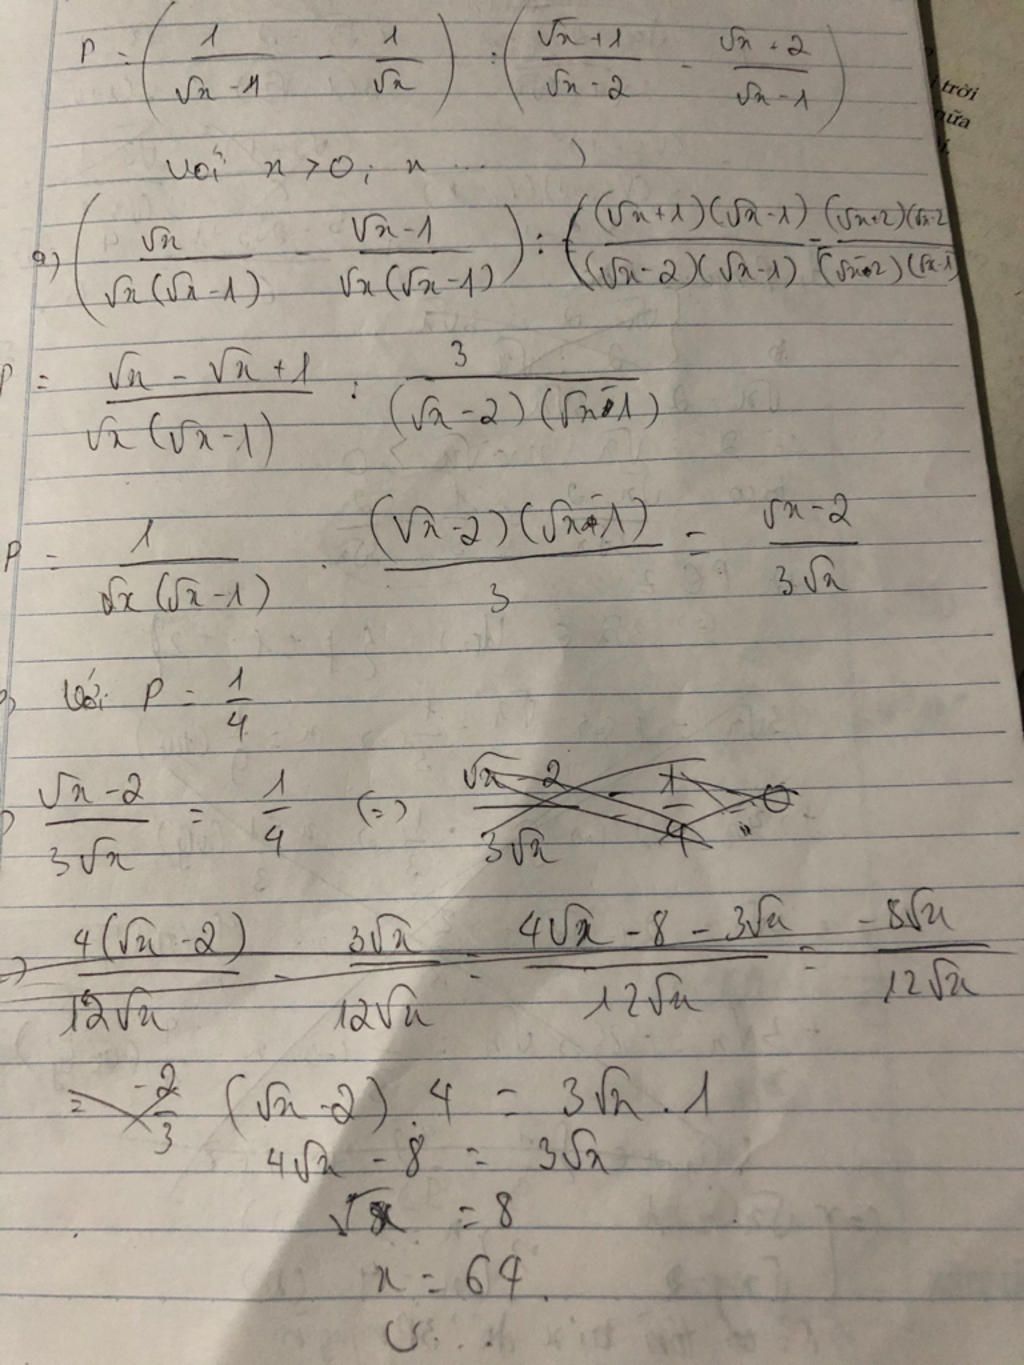 P = ( 1/(√x - 1) - 1/√x ) : ( (√x + 1)/(√x - 2) - (√x + 2)/(√x - 1) )
trời
nữa
với x > 0; x ... )
a) ( √x/(√x(√x - 1)) - (√x - 1)/(√x(√x - 1)) ) : ( ((√x + 1)(√x - 1))/((√x - 2)(√x - 1)) - ((√x + 2)(√x - 2)/((√x - 2)(√x - 1)
P = (√x - √x + 1)/(√x(√x - 1)) : 3/((√x - 2)(√x - 1))
P = 1/(√x(√x - 1)) . ((√x - 2)(√x - 1))/3 = (√x - 2)/(3√x)
Với P = 1/4
(√x - 2)/(3√x) = 1/4 (=) (√x - 2)/(3√x) - 1/4 = 0
4(√x - 2)/(12√x) - 3√x/(12√x) = (4√x - 8 - 3√x)/(12√x) = -8√x/(12√x)
= -2/3 (√x - 2) . 4 = 3√x . 1
4√x - 8 = 3√x
√x = 8
x = 64.